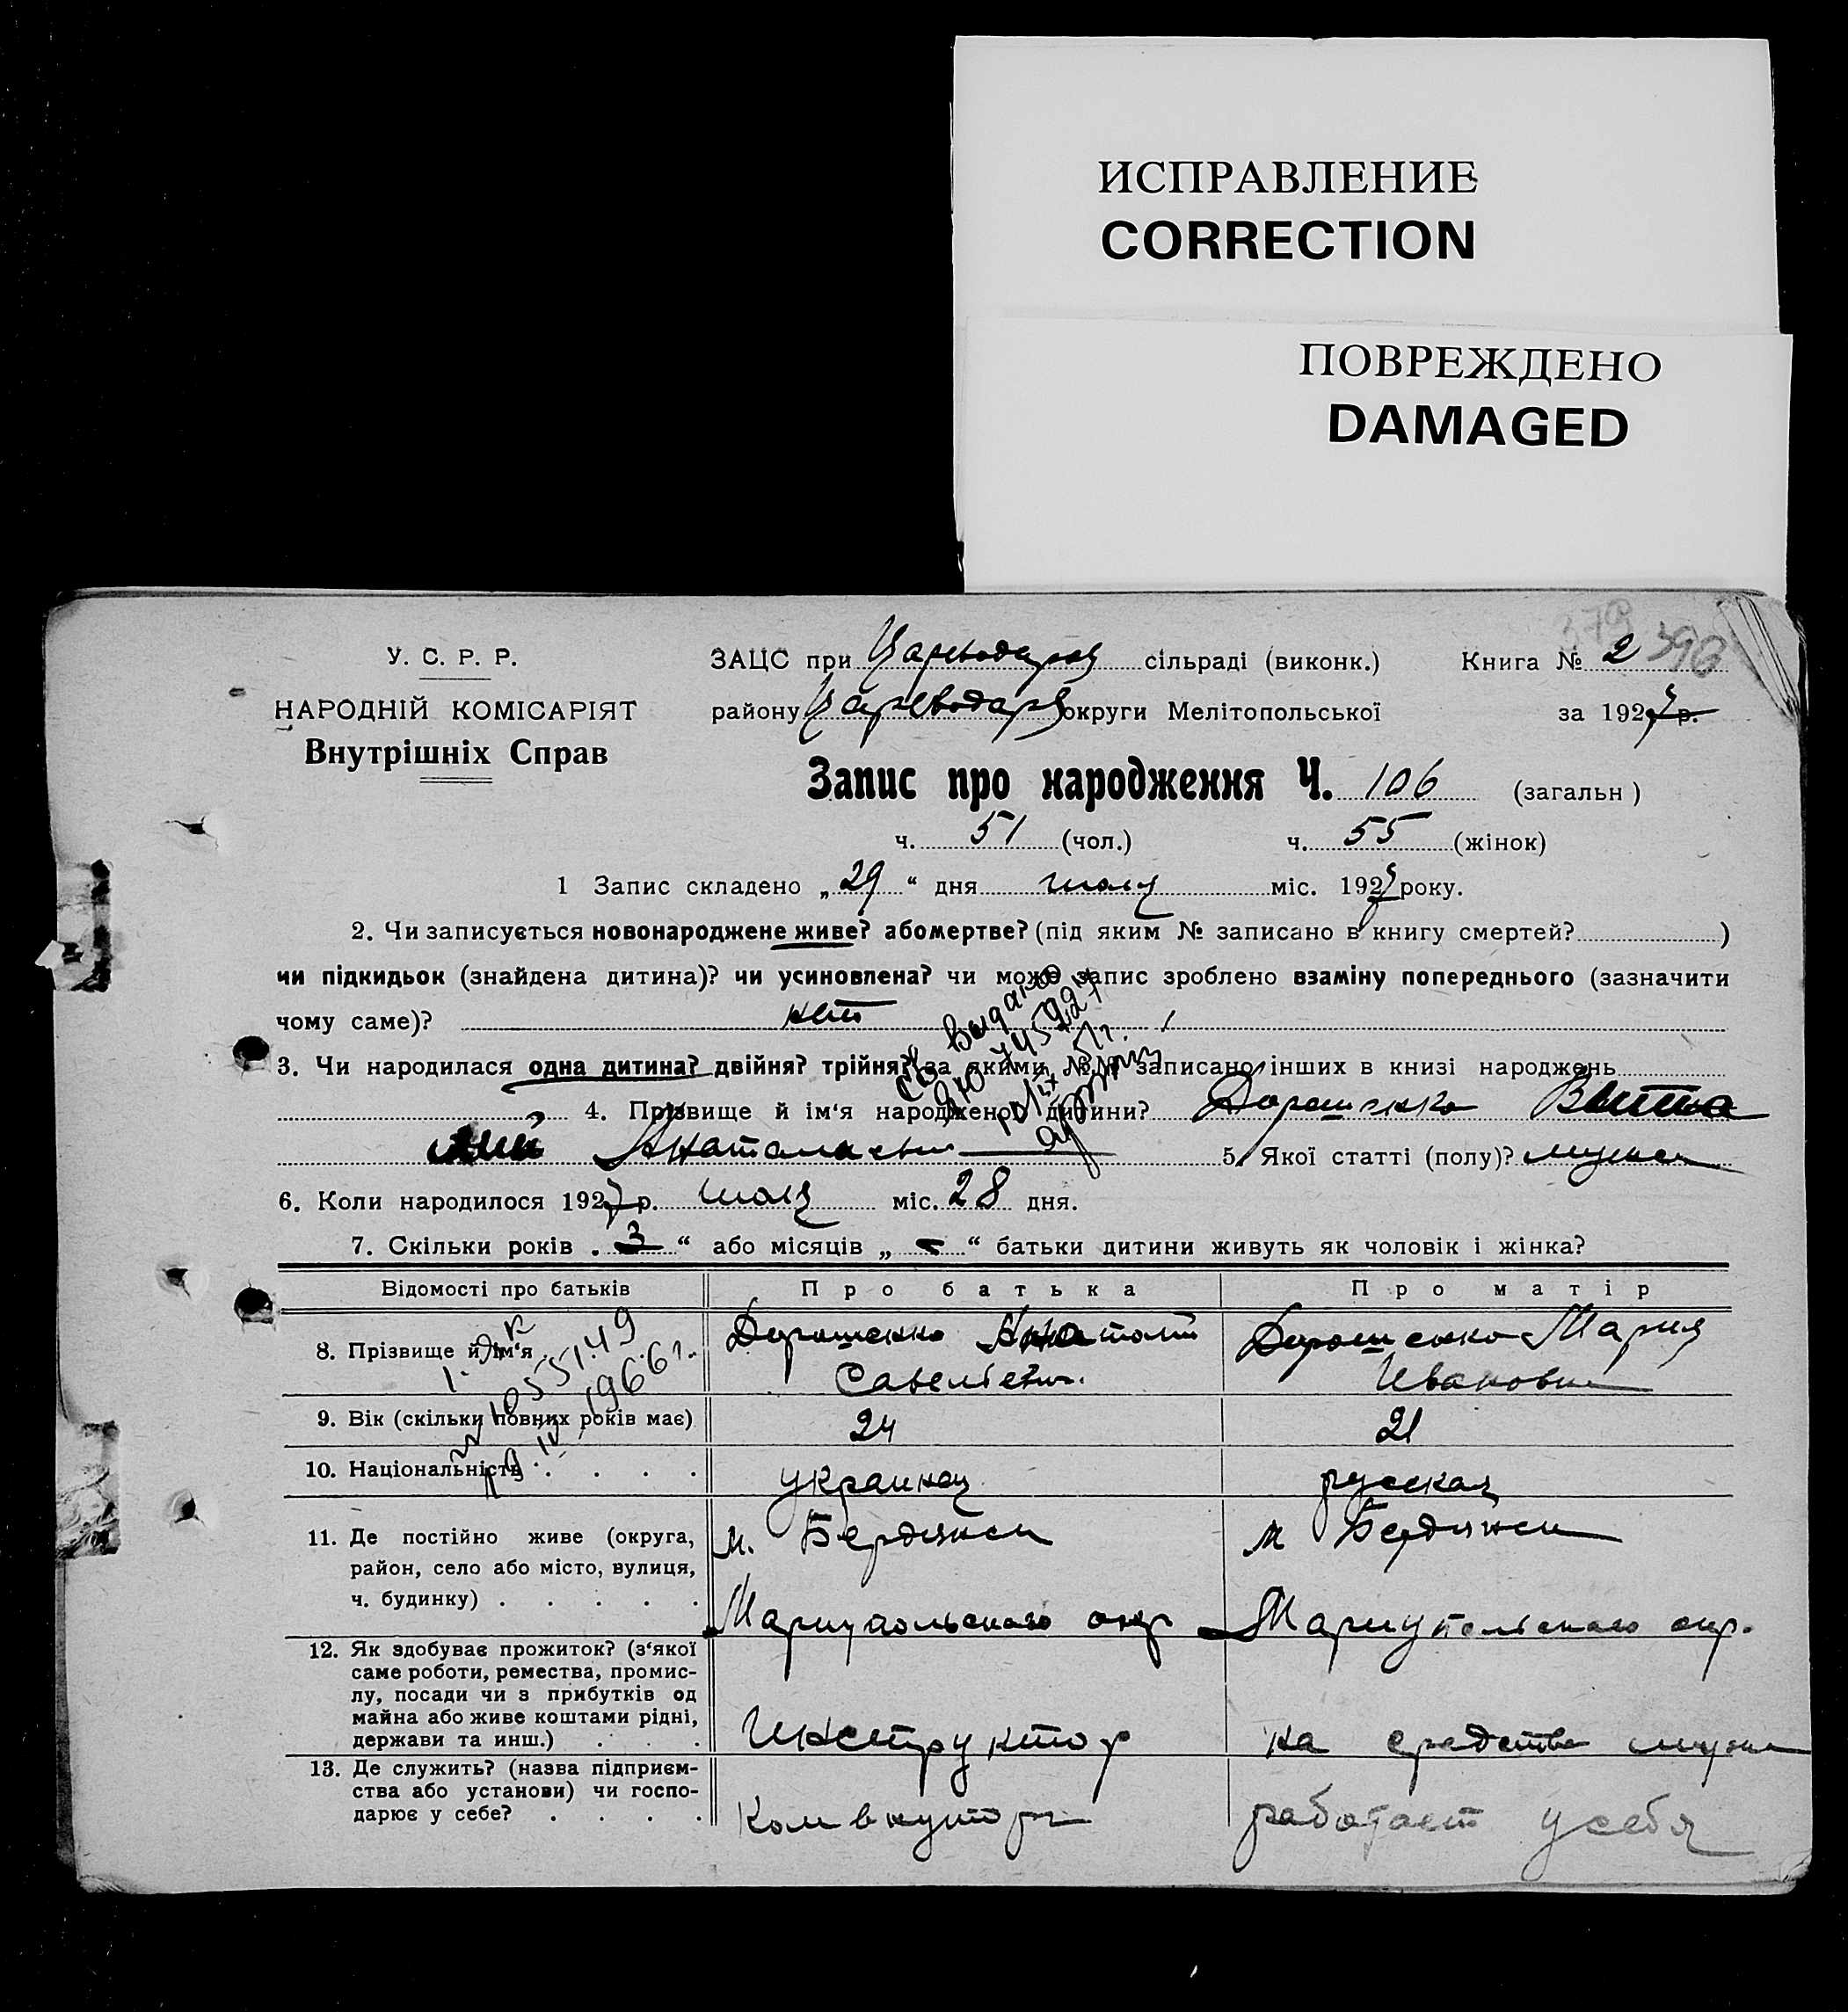 ИСПРАВЛЕНИЕ
CORRECTION
ПОВРЕЖДЕНО
DAMAGED
379 396
У. С. Р. Р.
НАРОДНІЙ КОМІСАРІЯТ
Внутрішніх Справ
ЗАЦС при Цареводаров сільраді (виконк.) Книга № 2
району Цареводар округи Мелітопольської за 1927 р.
Запис про народження Ч. 106 (загальн)
ч. 51 (чол.) ч. 55 (жінок)
1 Запис складено „29“ дня июля міс. 1927 року.
2. Чи записується новонароджене живе? абомертве? (під яким № записано в книгу смертей? )
чи підкидьок (знайдена дитина)? чи усиновлена? чи може запис зроблено взаміну попереднього (зазначити
чому саме)? нет
3. Чи народилася одна дитина? двійня? трійня? за якими №№ записано інших в книзі народжень
4. Прізвище й ім‘я народженої дитини? Дорошенко Вита
лий Анатольевич 5. Якої статті (полу)? мужск
6. Коли народилося 1927 р. июля міс. 28 дня.
7. Скільки років „3“ або місяців „ “ батьки дитини живуть як чоловік і жінка?
Відомості про батьків Про батька Про матір
8. Прізвище й ім‘я Дорошенко Анатолий Дорошенко Мария
Савельевич. Ивановна
9. Вік (скільки повних років має) 24 21
10. Національність украинец русская
11. Де постійно живе (округа, м. Бердянск м Бердянск
район, село або місто, вулиця,
ч. будинку) Мариупольского окр Мариупольского окр.
12. Як здобуває прожиток? (з‘якої
саме роботи, ремества, промис-
лу, посади чи з прибутків од
майна або живе коштами рідні,
держави та инш.) Инструктор на средства мужа
13. Де служить? (назва підприєм-
ства або установи) чи госпо-
дарює у себе? Комвнуторг работает у себя